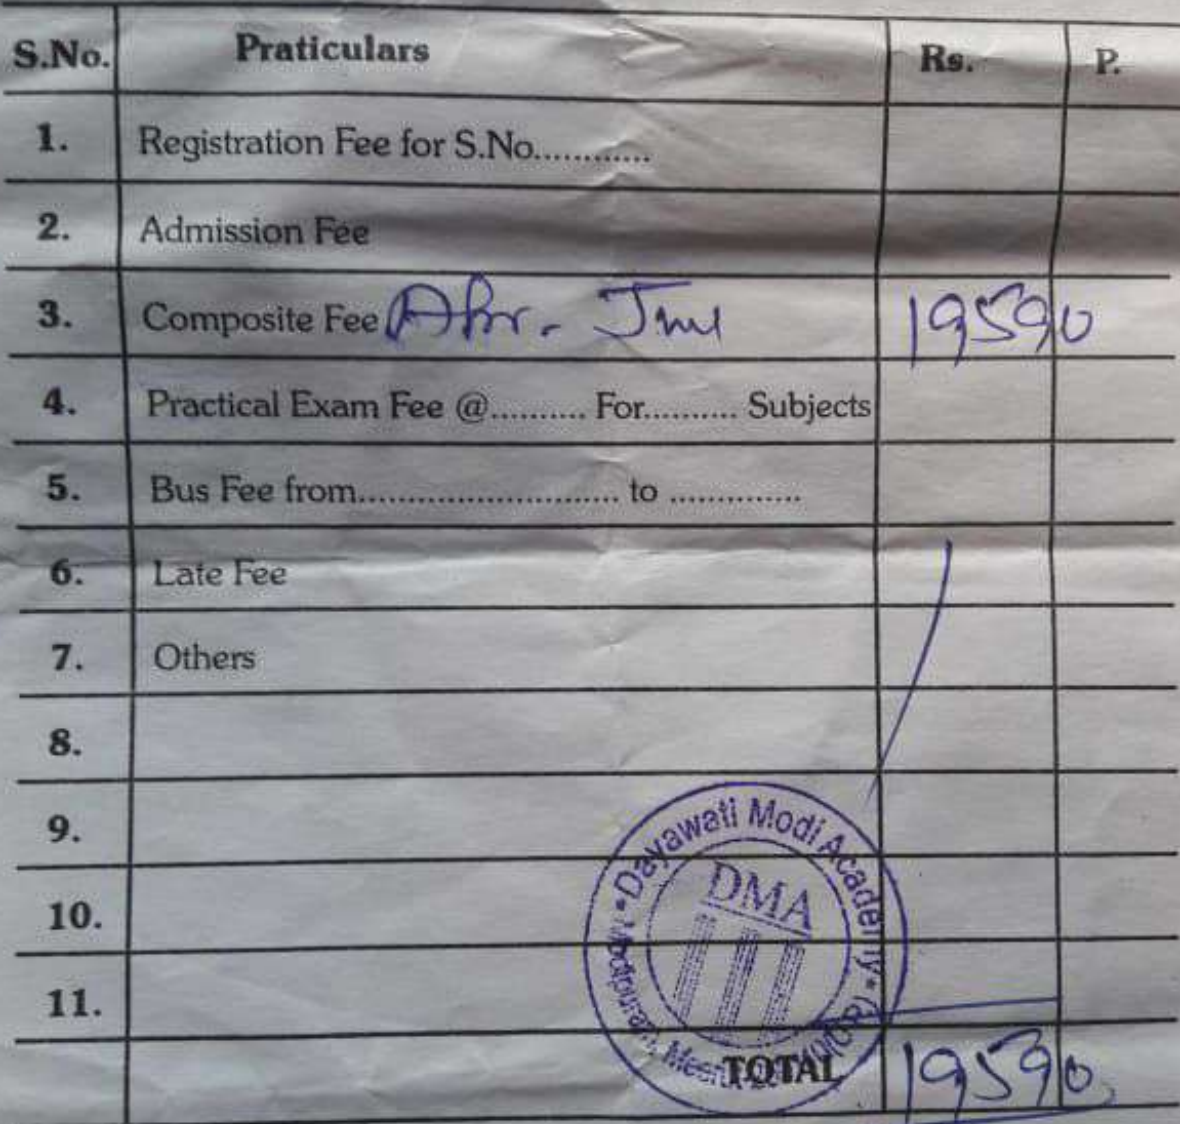 S.No. Praticulars Rs. P.
1. Registration Fee for S.No............
2. Admission Fee
3. Composite Fee 19590
4. Practical Exam Fee @.......... For.......... Subjects
5. Bus Fee from............................ to ..............
6. Late Fee
7. Others
8.
9.
10.
11.
Dayawati Modi Academy
DMA
Modipuram, Meerut
TOTAL 19590